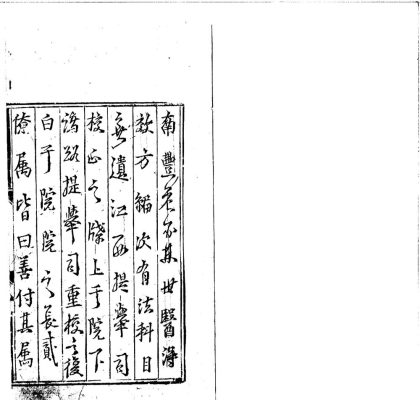 南豐危亦林世醫得
效方編次有法科目
無遺江西提舉司
校正之牒上于院下
諸路提舉司重校之復
白于院院之長貳
僚屬皆曰善付其屬